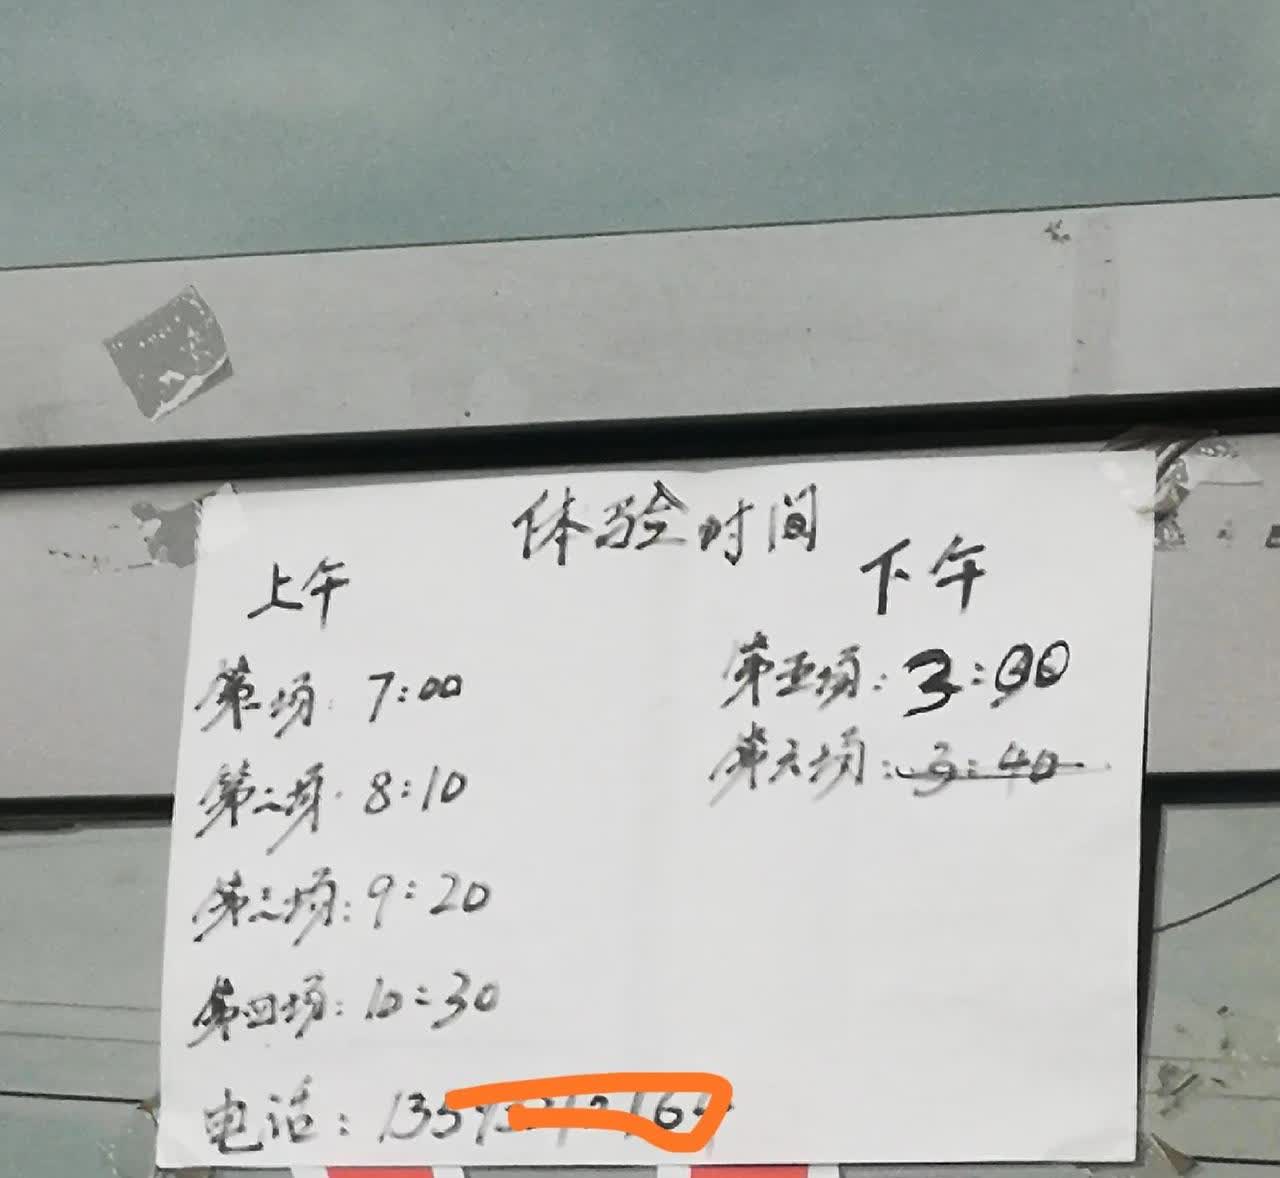 体验时间
上午
第一场: 7:00
第二场: 8:10
第三场: 9:20
第四场: 10:30
下午
第五场: 3:00
第六场: 3:40
电话: 135